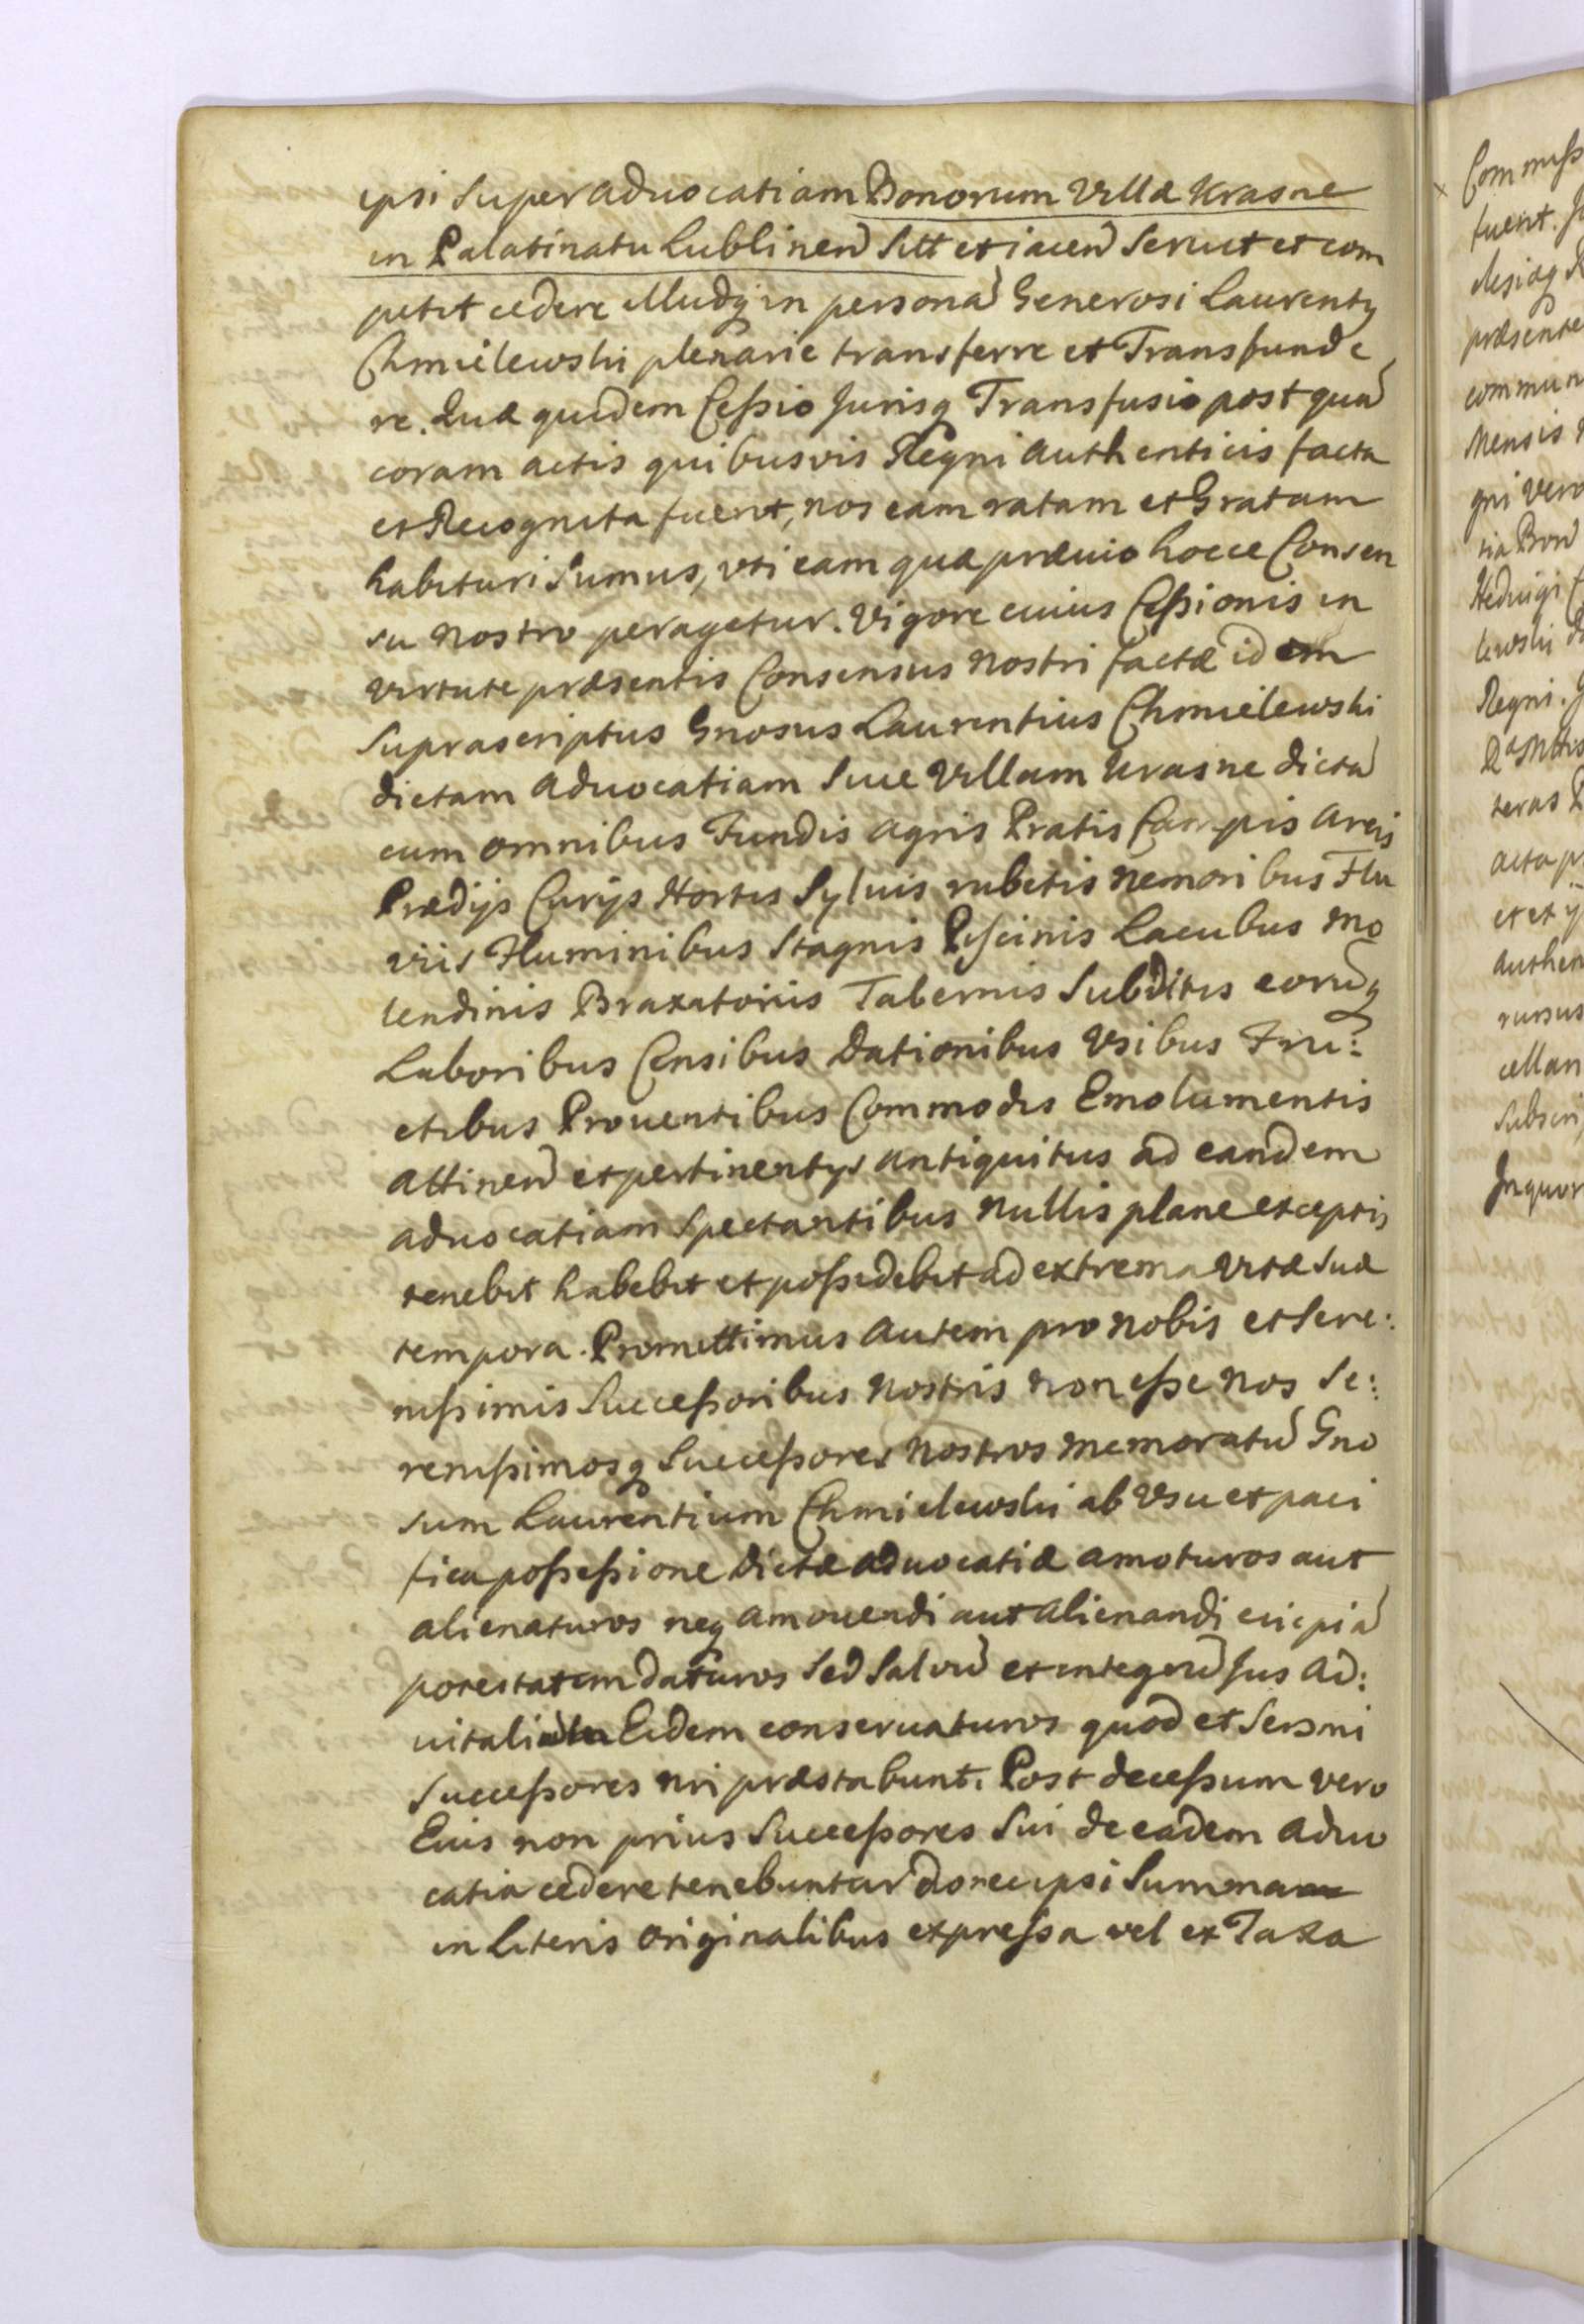 ipsi super aduocatiam Bonorum Villæ Krasne
in Palatinatu Lublinen̄ sitt et iacen̄ seruit et com
petit cedere illudq; in personā Generosi Laurentij
Chmielewski plenarie transferre et Transfunde
re. Quæ quidem Ceßio Jurisq; Transfusio postquā
coram actis quibusvis Regni Authenticis facta
et Recognita fuerit, nos eam ratam et Gratam
habituri sumus, vti eam quæ præuio hocce Consen
su nostro peragetur. Vigore cuius Ceßionis in
virtute præsentis Consensus nostri factæ idem
suprascriptus Gnosus Laurentius Chmielewski
dictam Aduocatiam siue Villam Krasne dictā
cum omnibus Fundis agris Pratis Campis areis
Prædijs Curijs Hortis Syluis rubetis nemoribus Flu
viis Fluminibus Stagnis Piscinis Lacubus mo
lendinis Braxatoriis Tabernis Subditis eorūq;
Laboribus Censibus Dationibus Vsibus Fru:
ctibus Prouentibus Commodis Emolumentis
Attinen̄ et pertinentijs antiquitus ad eandem
aduocatiam spectantibus nullis plane exceptis
tenebit habebit et poßidebit ad extrema vitæ suæ
tempora. Promittimus autem pro nobis et Sere:
nißimis Succeßoribus nostris non eße nos Se:
renißimosq; Succeßores nostros memoratū Gno
sum Laurentium Chmielewski ab Vsu et paci
fica poßeßione dictæ aduocatiæ amoturos aut
alienaturos neq; amouendi aut alienandi cuipiā
potestatem daturos sed Saluū et integrū Jus ad:
uitali Eidem conseruaturos quod et Sersmi
Succeßores nri præstabunt. Post deceßum vero
Eius non prius Succeßores sui de eadem aduo
catia cedere tenebuntur donec ipsi Summa
in literis originalibus expreßa vel ex Taxa
Com miß
fuerit.
præsente
commun
Mensis
gni vero
Heduigi
lewski
Regni.
teras
acta
et et
authen
rursus
cellan
Subscri
Inquor